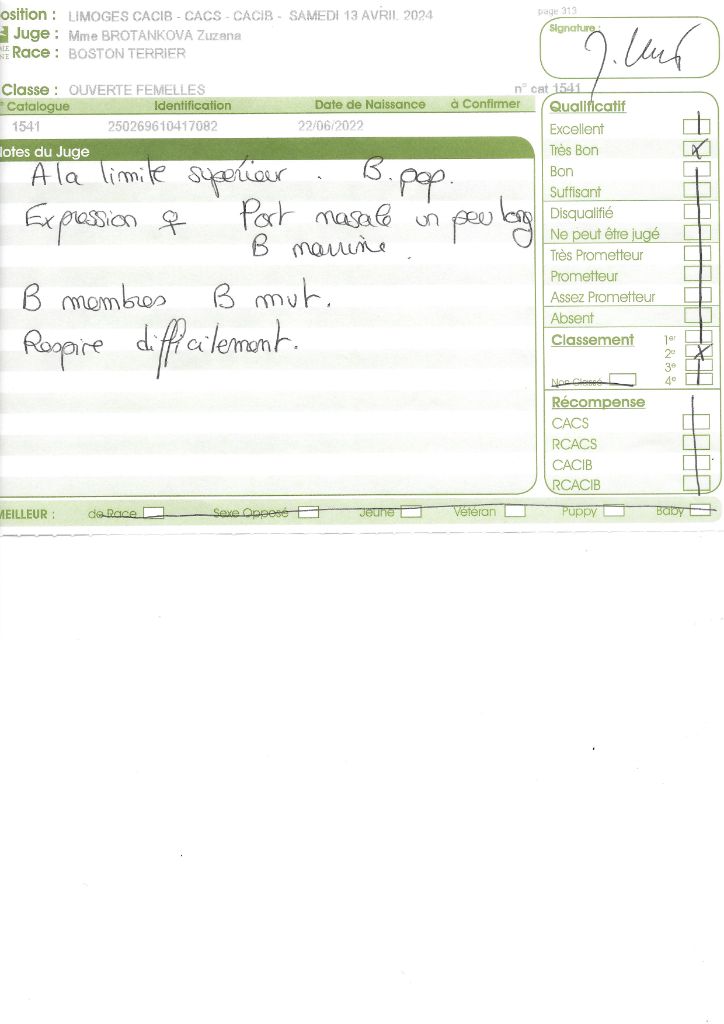 osition : LIMOGES CACIB - CACS - CACIB - SAMEDI 13 AVRIL 2024
page 313
Juge : Mme BROTANKOVA Zuzana
Signature :
Race : BOSTON TERRIER
Classe : OUVERTE FEMELLES
n° cat 1541
° Catalogue Identification Date de Naissance à Confirmer
1541 250269610417082 22/06/2022
Notes du Juge
A la limite supérieur . B. pop.
Expression ♀ Part nasale un peu long
B
B membres B mvt.
Respire difficilement.
Qualificatif
Excellent
Très Bon X
Bon
Suffisant
Disqualifié
Ne peut être jugé
Très Prometteur
Prometteur
Assez Prometteur
Absent
Classement 1er
2e X
3e
Non Classé 4e
Récompense
CACS
RCACS
CACIB
RCACIB
MEILLEUR : de Race Sexe Opposé Jeune Vétéran Puppy Baby